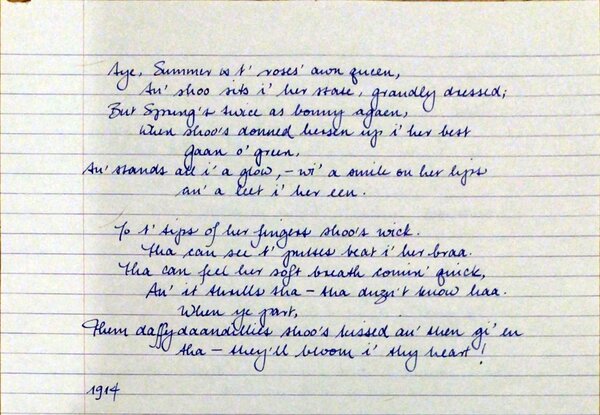 Aye, Summer is t' roses' awn queen,
An' shoo sits i' her state, grandly dressed;
But Spring's twice as bonny agaen,
When shoo's donned hersen up i' her best
Gaan o' green,
An' stands all i' a glow, – wi' a smile on her lips
an' a leet i' her een.
To t' tips of her fingers shoo's wick.
Tha can see t' pulses beat i' her braa.
Tha can feel her soft breath comin' quick,
An' it thrills tha – tha duzn't know haa.
When ye part,
Them daffydaandillies shoo's kissed an' then gi'en
tha – they'll bloom i' thy heart!
1914